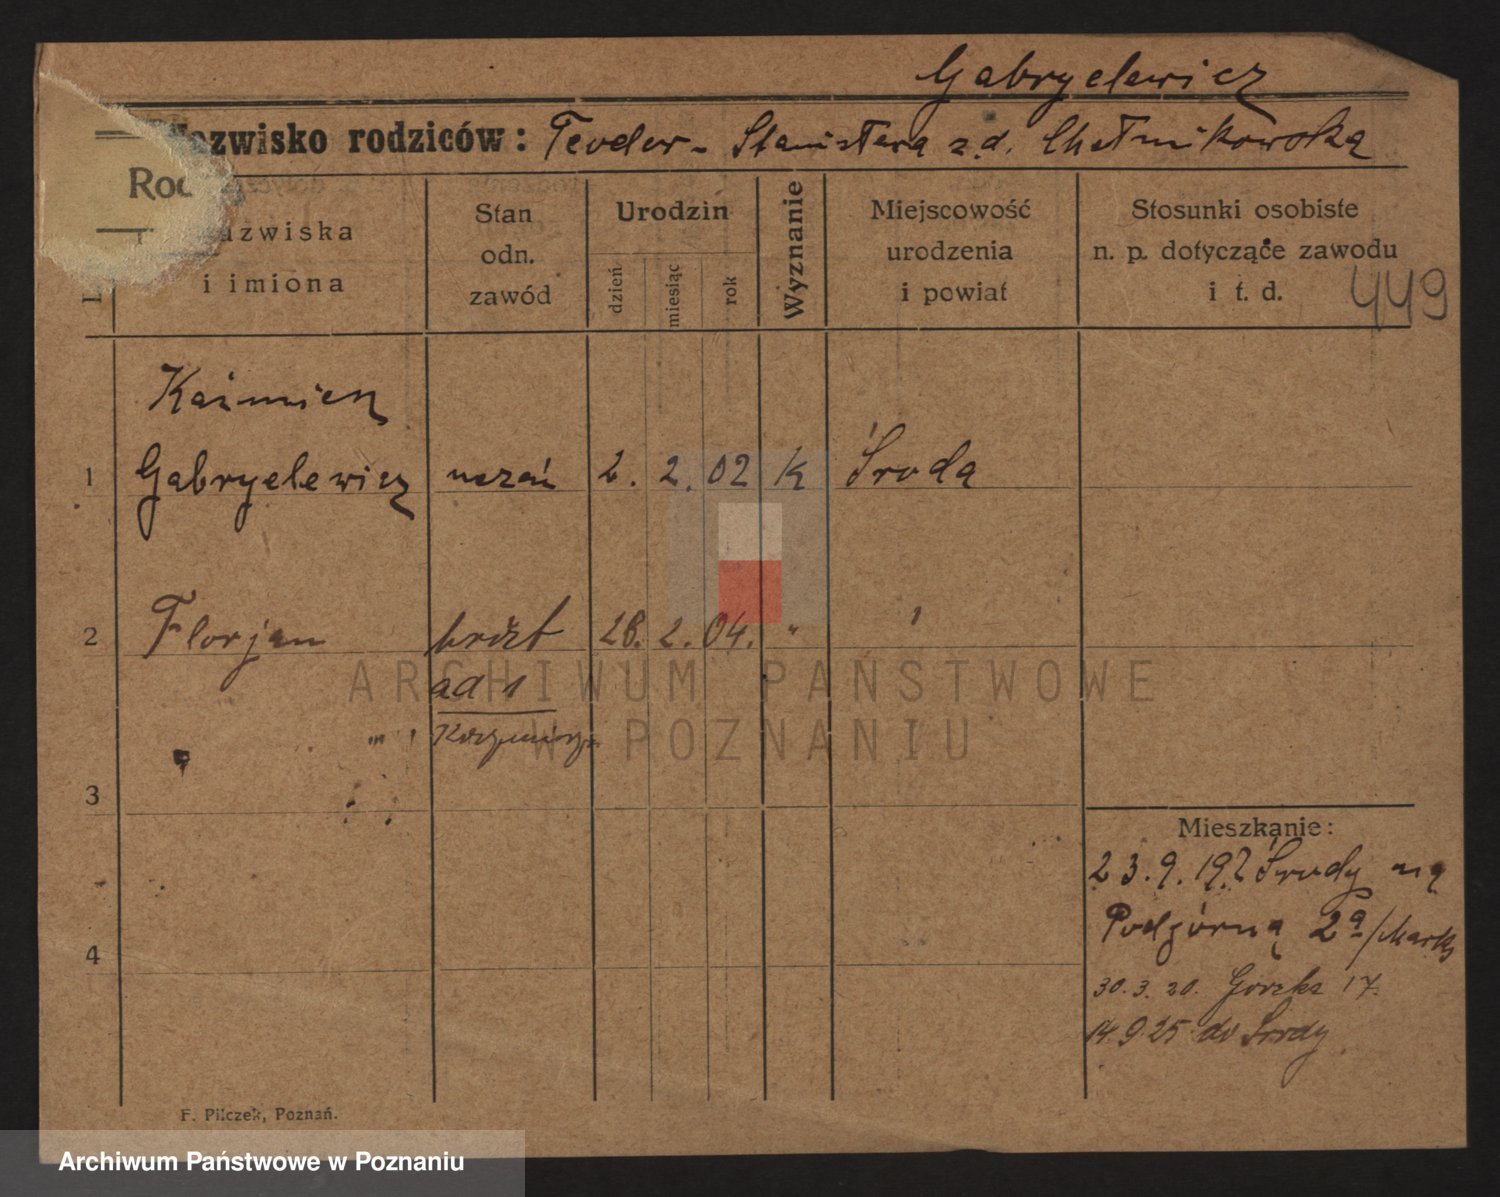 Gabryelewicz
Nazwisko rodziców: Teodor - Stanisława z.d. Chełmikowska
Rod
Nazwiska
i imiona
Stan
odn.
zawód
Urodzin
dzień
miesiąc
rok
Wyznanie
Miejscowość
urodzenia
i powiat
Stosunki osobiste
n. p. dotyczące zawodu
i t. d.
449
Kaźmierz
1 Gabryelewicz uczeń 2. 2. 02 K Środa
2 Florjan 2. 04. "
ad 1
3
4
Mieszkanie:
23.9.19 Środy na
Podgórną 2a/
30.3.20. Górska 17.
14.9.25 do Środy
F. Pilczek, Poznań.
ARCHIWUM PAŃSTWOWE
W POZNANIU
Archiwum Państwowe w Poznaniu